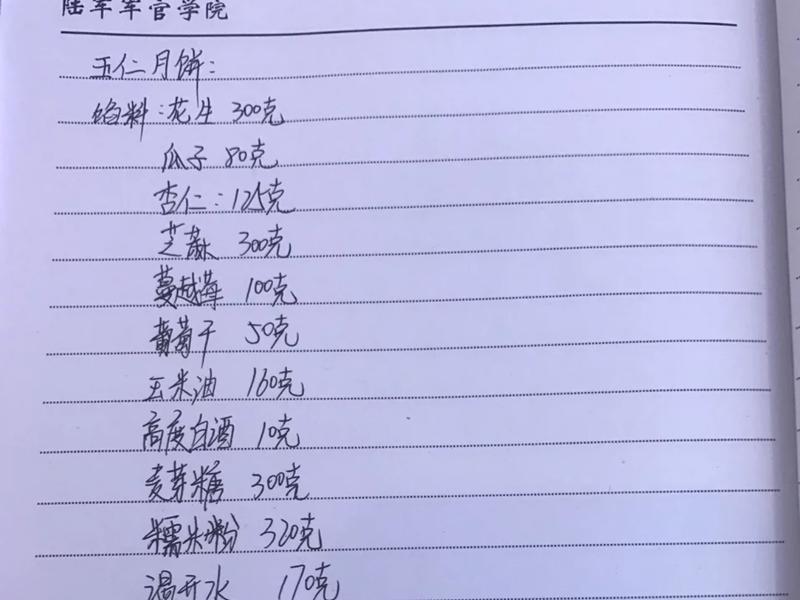 陆军军官学院
五仁月饼:
馅料:花生 300克
瓜子 80克
杏仁:125克
芝蔴 300克
蔓越莓 100克
葡萄干 50克
玉米油 160克
高度白酒 10克
麦芽糖 300克
糯米粉 320克
温开水 170克